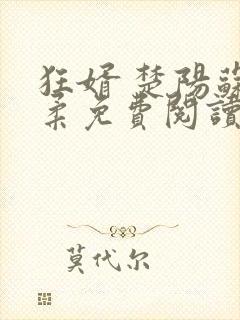 狂婿 楚陽蘇
柔免費閱讀
莫代尔